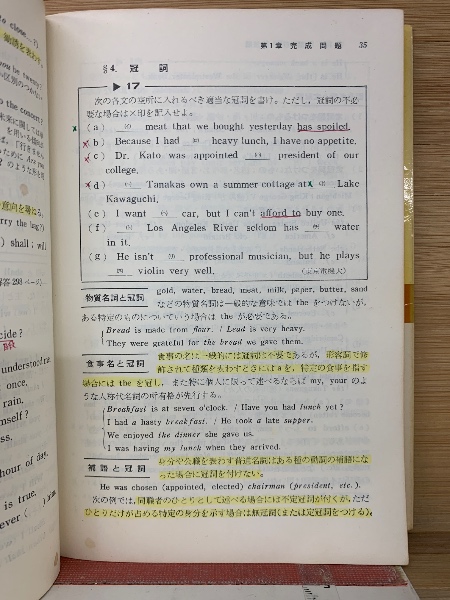 第1章 完成問題 35
§4. 冠詞
▶17
次の各文の空所に入れるべき適当な冠詞を書け。ただし，冠詞の不必
要な場合は×印を記入せよ。
(a) meat that we bought yesterday has spoiled.
(b) Because I had heavy lunch, I have no appetite.
(c) Dr. Kato was appointed president of our
college.
(d) Tanakas own a summer cottage at Lake
Kawaguchi.
(e) I want car, but I can't afford to buy one.
(f) Los Angeles River seldom has water
in it.
(g) He isn't professional musician, but he plays
violin very well.
物質名詞と冠詞 gold, water, bread, meat, milk, paper, butter, sand
などの物質名詞は一般的な意味では the をつけないが，
ある特定のものについていう場合は the が必要である。
Bread is made from flour. / Lead is very heavy.
They were grateful for the bread we gave them.
食事名と冠詞 食事の名は一般的には冠詞は不要であるが，形容詞で修
飾されて種類を表わすときには a を，特定の食事を指す
場合には the を冠し，また特に個人に限って述べるならば my, your のよ
うな人称代名詞の所有格が先行する。
Breakfast is at seven o'clock. / Have you had lunch yet?
I had a hasty breakfast. / He took a late supper.
We enjoyed the dinner she gave us.
I was having my lunch when they arrived.
補語と冠詞 身分や公職を表わす普通名詞はある種の動詞の補語にな
った場合に冠詞を付けない。
He was chosen (appointed, elected) chairman (president, etc.).
次の例では，同職者のひとりとして述べる場合には不定冠詞が付くが，ただ
ひとりだけが占める特定の身分を示す場合は無冠詞(または定冠詞をつける)。